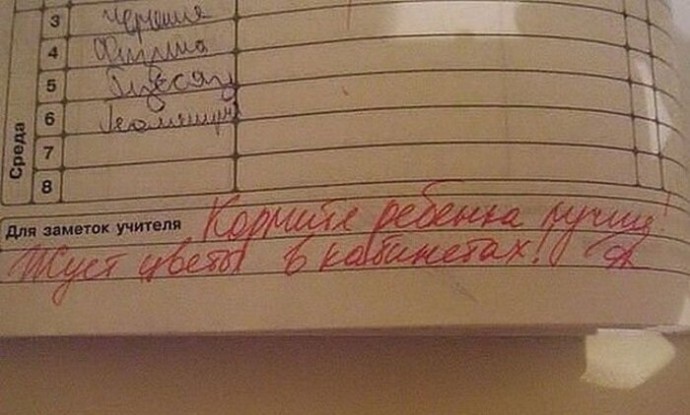 3 черчение
4 Физика
5 Русский
6 Геометрия
7
Среда
8
Для заметок учителя Кормите ребенка лучше!
Жуёт цветы в кабинетах!